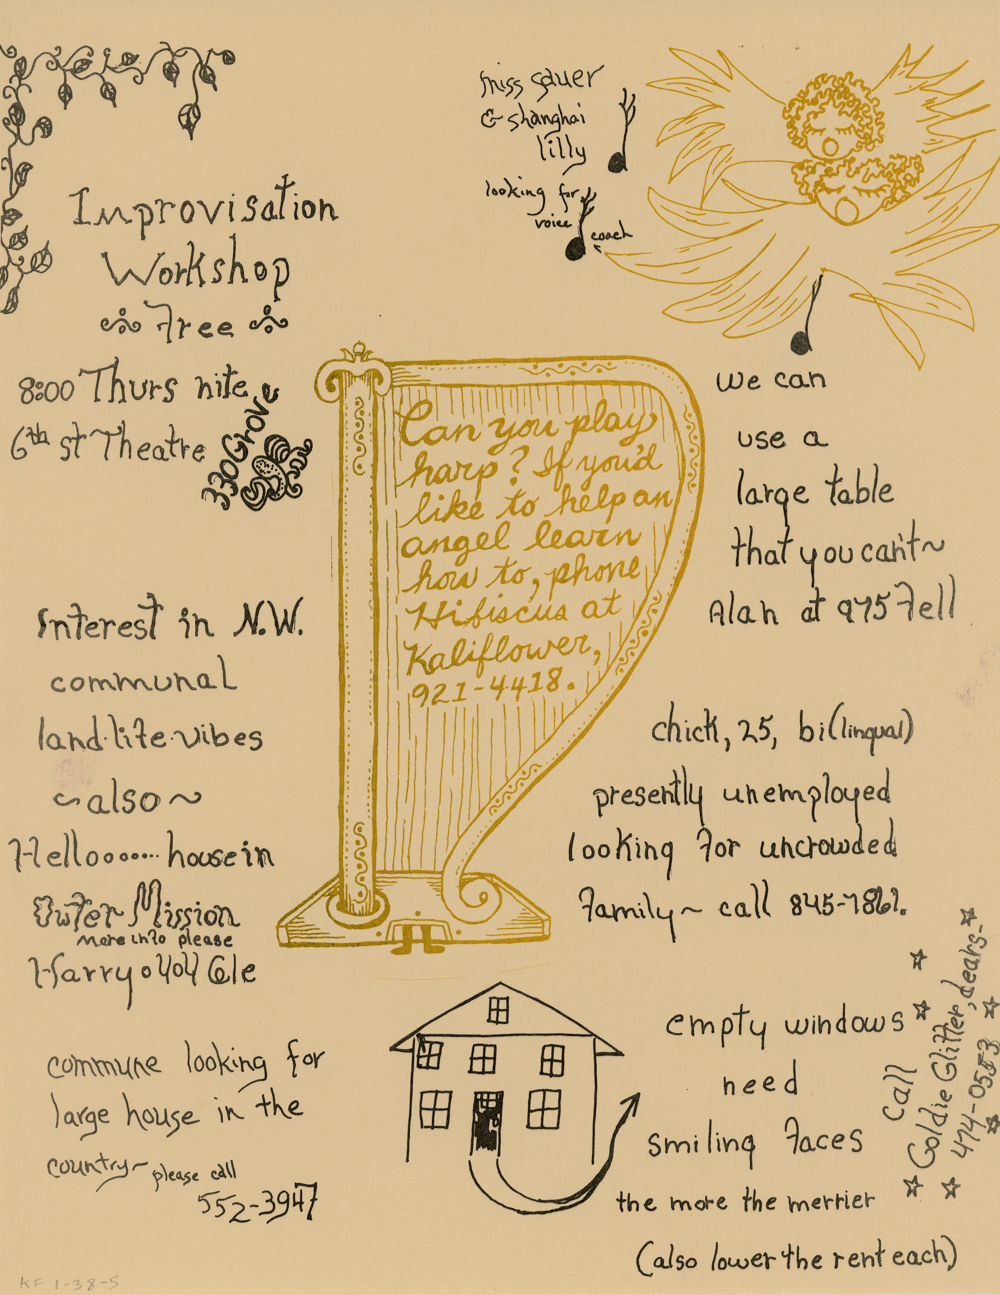 miss sauer
& shanghai
lilly
looking for
voice
coach
Improvisation
Workshop
Free
8:00 Thurs nite
6th st Theatre
330 Grove
Can you play
harp? If you'd
like to help an
angel learn
how to, phone
Hibiscus at
Kaliflower,
921-4418.
we can
use a
large table
that you can't~
Alan at 975 Fell
Interest in N.W.
communal
land·life·vibes
~also~
Hellooooo..... house in
Outer Mission
more info please
Harry o 404 Cole
chick, 25, bi(lingual)
presently unemployed
looking for uncrowded
Family~ call 845-7861.
commune looking for
large house in the
country~ please call
552-3947
empty windows
need
smiling faces
the more the merrier
(also lower the rent each)
Call
Goldie Glitter, dears-
474-0553
KF 1-38-5